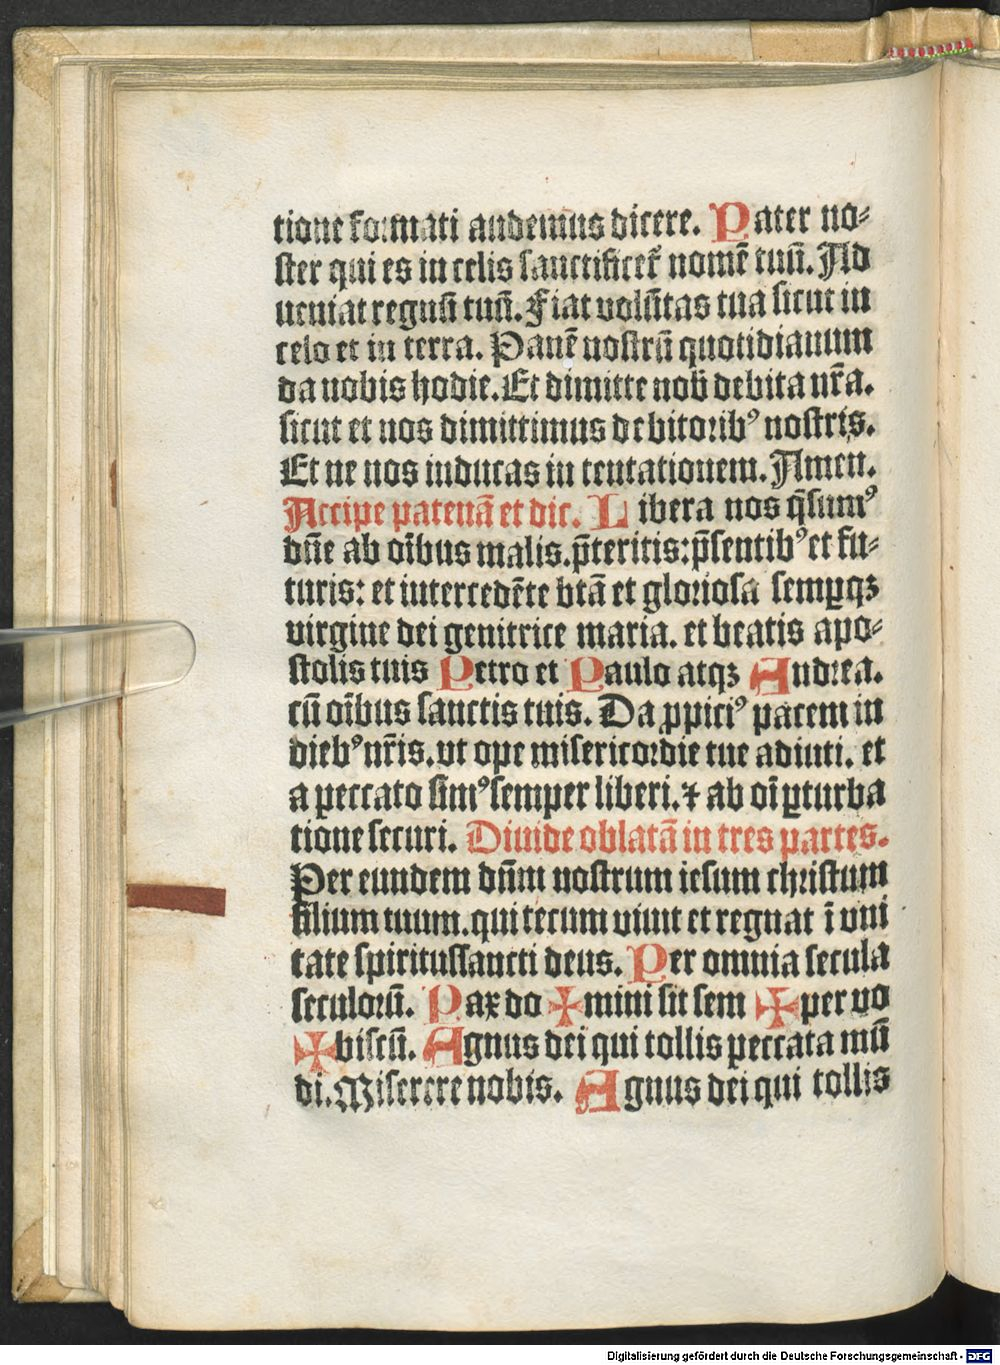 tione formati audemus dicere. Pater no⸗
ster qui es in celis sanctificet᷑ nomē tuū. Ad
ueniat regnū tuū. Fiat volūtas tua sicut in
celo et in terra. Panē nostrū quotidianum
da nobis hodie. Et dimitte nob̄ debita nr̄a.
sicut et nos dimittimus debitoribꝰ nostris.
Et ne nos inducas in tentationem. Amen.
Accipe patenā et dic. Libera nos q̄sumꝰ
dn̄e ab oībus malis. p̄teritis: p̄sentibꝰ et fu⸗
turis: et intercedēte btā et gloriosa semꝑqꝫ
virgine dei genitrice maria. et beatis apo⸗
stolis tuis Petro et Paulo atqꝫ Andrea.
cū oībus sanctis tuis. Da ꝓpiciꝰ pacem in
diebꝰ nr̄is. vt ope misericordie tue adiuti. et
a peccato simꝰ semper liberi. ⁊ ab oī ꝑturba
tione securi. Diuide oblatā in tres partes.
Per eundem dn̄m nostrum iesum christum
filium tuum. qui tecum viuit et regnat ī vni
tate spiritussancti deus. Per omnia secula
seculorū. Pax do ✠ mini sit sem ✠ per vo
✠ biscū. Agnus dei qui tollis peccata mū
di. Miserere nobis. Agnus dei qui tollis
Digitalisierung gefördert durch die Deutsche Forschungsgemeinschaft - DFG